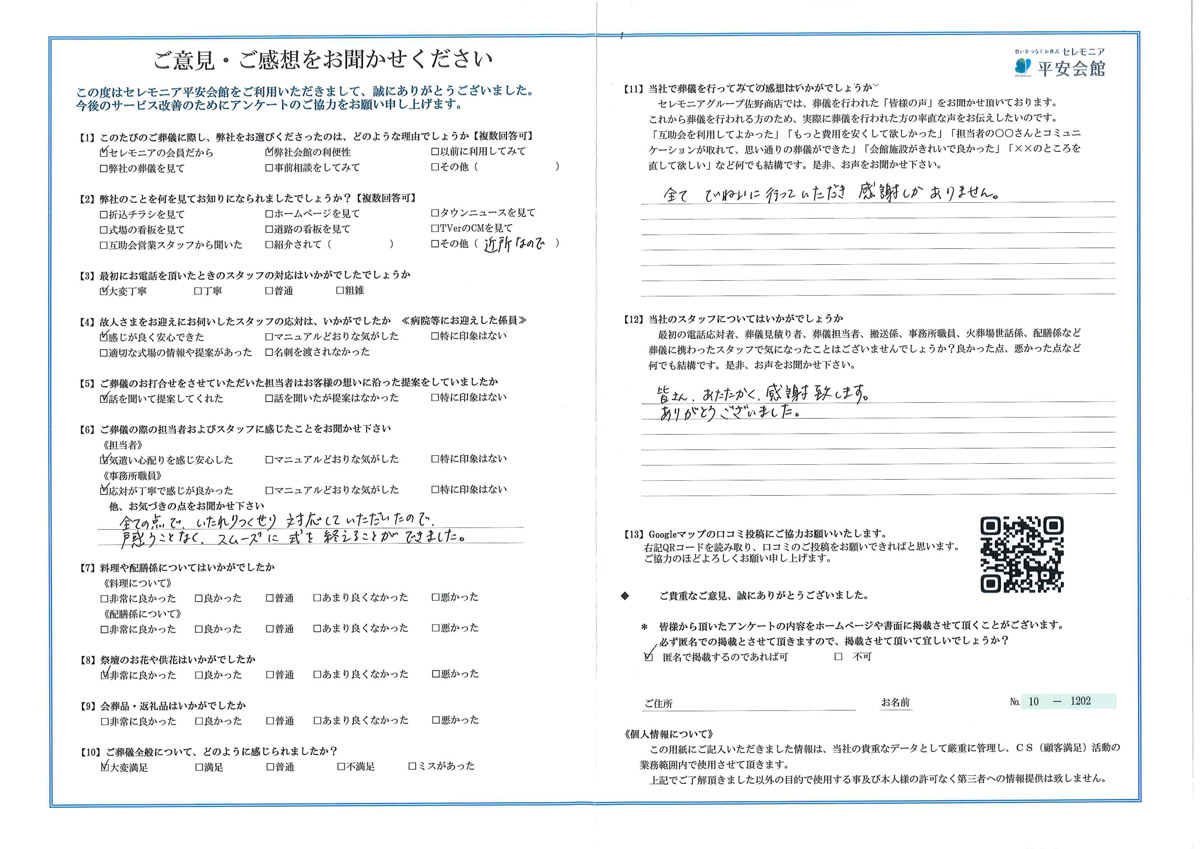 ご意見・ご感想をお聞かせください
この度はセレモニア平安会館をご利用いただきまして、誠にありがとうございました。
今後のサービス改善のためにアンケートのご協力をお願い申し上げます。
【1】このたびのご葬儀に際し、弊社をお選びくださったのは、どのような理由でしょうか【複数回答可】
☑セレモニアの会員だから ☑弊社会館の利便性 □以前に利用してみて
□弊社の葬儀を見て □事前相談をしてみて □その他（ ）
【2】弊社のことを何を見てお知りになられましたでしょうか？【複数回答可】
□折込チラシを見て □ホームページを見て □タウンニュースを見て
□式場の看板を見て □道路の看板を見て □TVerのCMを見て
□互助会営業スタッフから聞いた □紹介されて（ ） □その他（近所なので）
【3】最初にお電話を頂いたときのスタッフの対応はいかがでしたでしょうか
☑大変丁寧 □丁寧 □普通 □粗雑
【4】故人さまをお迎えにお伺いしたスタッフの応対は、いかがでしたか ≪病院等にお迎えした係員≫
☑感じが良く安心できた □マニュアルどおりな気がした □特に印象はない
□適切な式場の情報や提案があった □名刺を渡されなかった
【5】ご葬儀のお打合せをさせていただいた担当者はお客様の想いに沿った提案をしていましたか
☑話を聞いて提案してくれた □話を聞いたが提案はなかった □特に印象はない
【6】ご葬儀の際の担当者およびスタッフに感じたことをお聞かせ下さい
《担当者》
☑気遣い心配りを感じ安心した □マニュアルどおりな気がした □特に印象はない
《事務所職員》
☑応対が丁寧で感じが良かった □マニュアルどおりな気がした □特に印象はない
他、お気づきの点をお聞かせ下さい
全ての点で、いたれりつくせり 対応していただいたので、
戸惑うことなく、スムーズに 式を 終えることができました。
【7】料理や配膳係についてはいかがでしたか
《料理について》
□非常に良かった □良かった □普通 □あまり良くなかった □悪かった
《配膳係について》
□非常に良かった □良かった □普通 □あまり良くなかった □悪かった
【8】祭壇のお花や供花はいかがでしたか
☑非常に良かった □良かった □普通 □あまり良くなかった □悪かった
【9】会葬品・返礼品はいかがでしたか
□非常に良かった □良かった □普通 □あまり良くなかった □悪かった
【10】ご葬儀全般について、どのように感じられましたか？
☑大変満足 □満足 □普通 □不満足 □ミスがあった
想いをつなぐお葬式 セレモニア
平安会館
【11】当社で葬儀を行ってみての感想はいかがでしょうか
セレモニアグループ佐野商店では、葬儀を行われた「皆様の声」をお聞かせ頂いております。
これから葬儀を行われる方のため、実際に葬儀を行われた方の率直な声をお伝えしたいのです。
「互助会を利用してよかった」「もっと費用を安くして欲しかった」「担当者の〇〇さんとコミュニ
ケーションが取れて、思い通りの葬儀ができた」「会館施設がきれいで良かった」「××のところを
直して欲しい」など何でも結構です。是非、お声をお聞かせ下さい。
全て ていねいに 行っていただき 感謝しか ありません。
【12】当社のスタッフについてはいかがでしょうか
最初の電話応対者、葬儀見積り者、葬儀担当者、搬送係、事務所職員、火葬場世話係、配膳係など
葬儀に携わったスタッフで気になったことはございませんでしょうか？良かった点、悪かった点など
何でも結構です。是非、お声をお聞かせ下さい。
皆さん、あたたかく、感謝致します。
ありがとうございました。
【13】Googleマップの口コミ投稿にご協力お願いいたします。
右記QRコードを読み取り、口コミのご投稿をお願いできればと思います。
ご協力のほどよろしくお願い申し上げます。
◆ ご貴重なご意見、誠にありがとうございました。
＊ 皆様から頂いたアンケートの内容をホームページや書面に掲載させて頂くことがございます。
必ず匿名での掲載とさせて頂きますので、掲載させて頂いて宜しいでしょうか？
☑ 匿名で掲載するのであれば可 □ 不可
ご住所 お名前 № 10 － 1202
《個人情報について》
この用紙にご記入いただきました情報は、当社の貴重なデータとして厳重に管理し、ＣＳ（顧客満足）活動の
業務範囲内で使用させて頂きます。
上記でご了解頂きました以外の目的で使用する事及び本人様の許可なく第三者への情報提供は致しません。